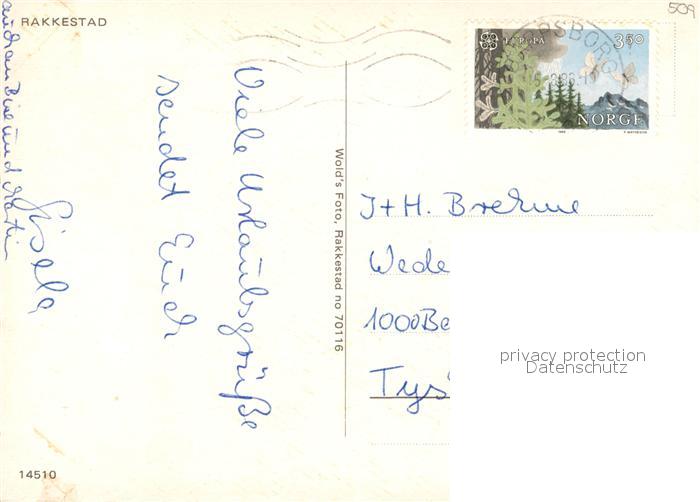 509
RAKKESTAD
EUROPA
3.50
NORGE
Viele Urlaubsgrüße
sendet Euch
Gisela
auch an Bise und Martin
Wold's Foto, Rakkestad no 70116
J+H. Brehme
Wede
1000 Be
Tys
privacy protection
Datenschutz
14510